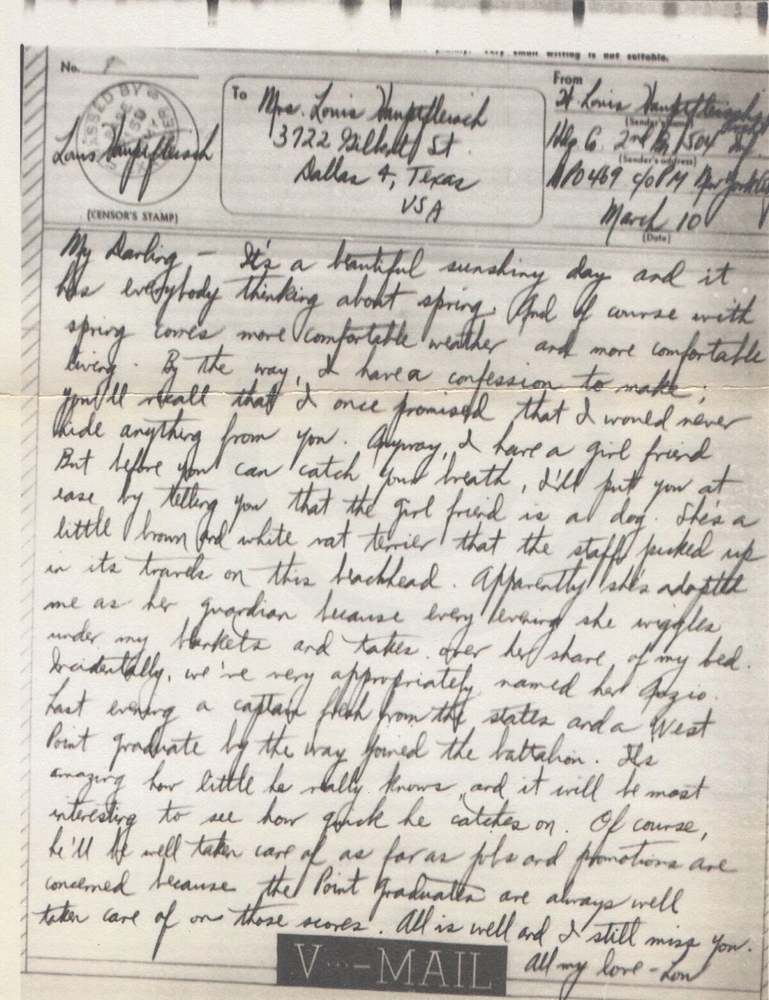 very small writing is not suitable.
No.
PASSED BY
(CENSOR'S STAMP)
To
Mrs. Louis Hauptfleisch
3722 Gilbert St.
Dallas 4, Texas
USA
From
Lt. Louis Hauptfleisch
(Sender's name)
Hdq Co. 2nd Bn, 504
(Sender's address)
APO 469 c/o PM New York City
March 10
(Date)
Louis Hauptfleisch
My Darling - It's a beautiful sunshiny day and it
has everybody thinking about spring. And of course with
spring comes more comfortable weather and more comfortable
living. By the way, I have a confession to make;
you'll recall that I once promised that I would never
hide anything from you. Anyway, I have a girl friend
But before you can catch your breath, I'll put you at
ease by telling you that the girl friend is a dog. She's a
little brown and white rat terrier that the staff picked up
in its travels on this beachhead. Apparently she's adopted
me as her guardian because every evening she wiggles
under my blankets and takes over her share of my bed.
Incidentally, we've very appropriately named her Anzio.
Last evening a captain fresh from the states and a West
Point graduate by the way joined the battalion. It's
amazing how little he really knows, and it will be most
interesting to see how quick he catches on. Of course,
he'll be well taken care of as far as jobs and promotions are
concerned because the Point graduates are always well
taken care of on those scores. All is well and I still miss you.
All my love - Lou
V···—MAIL